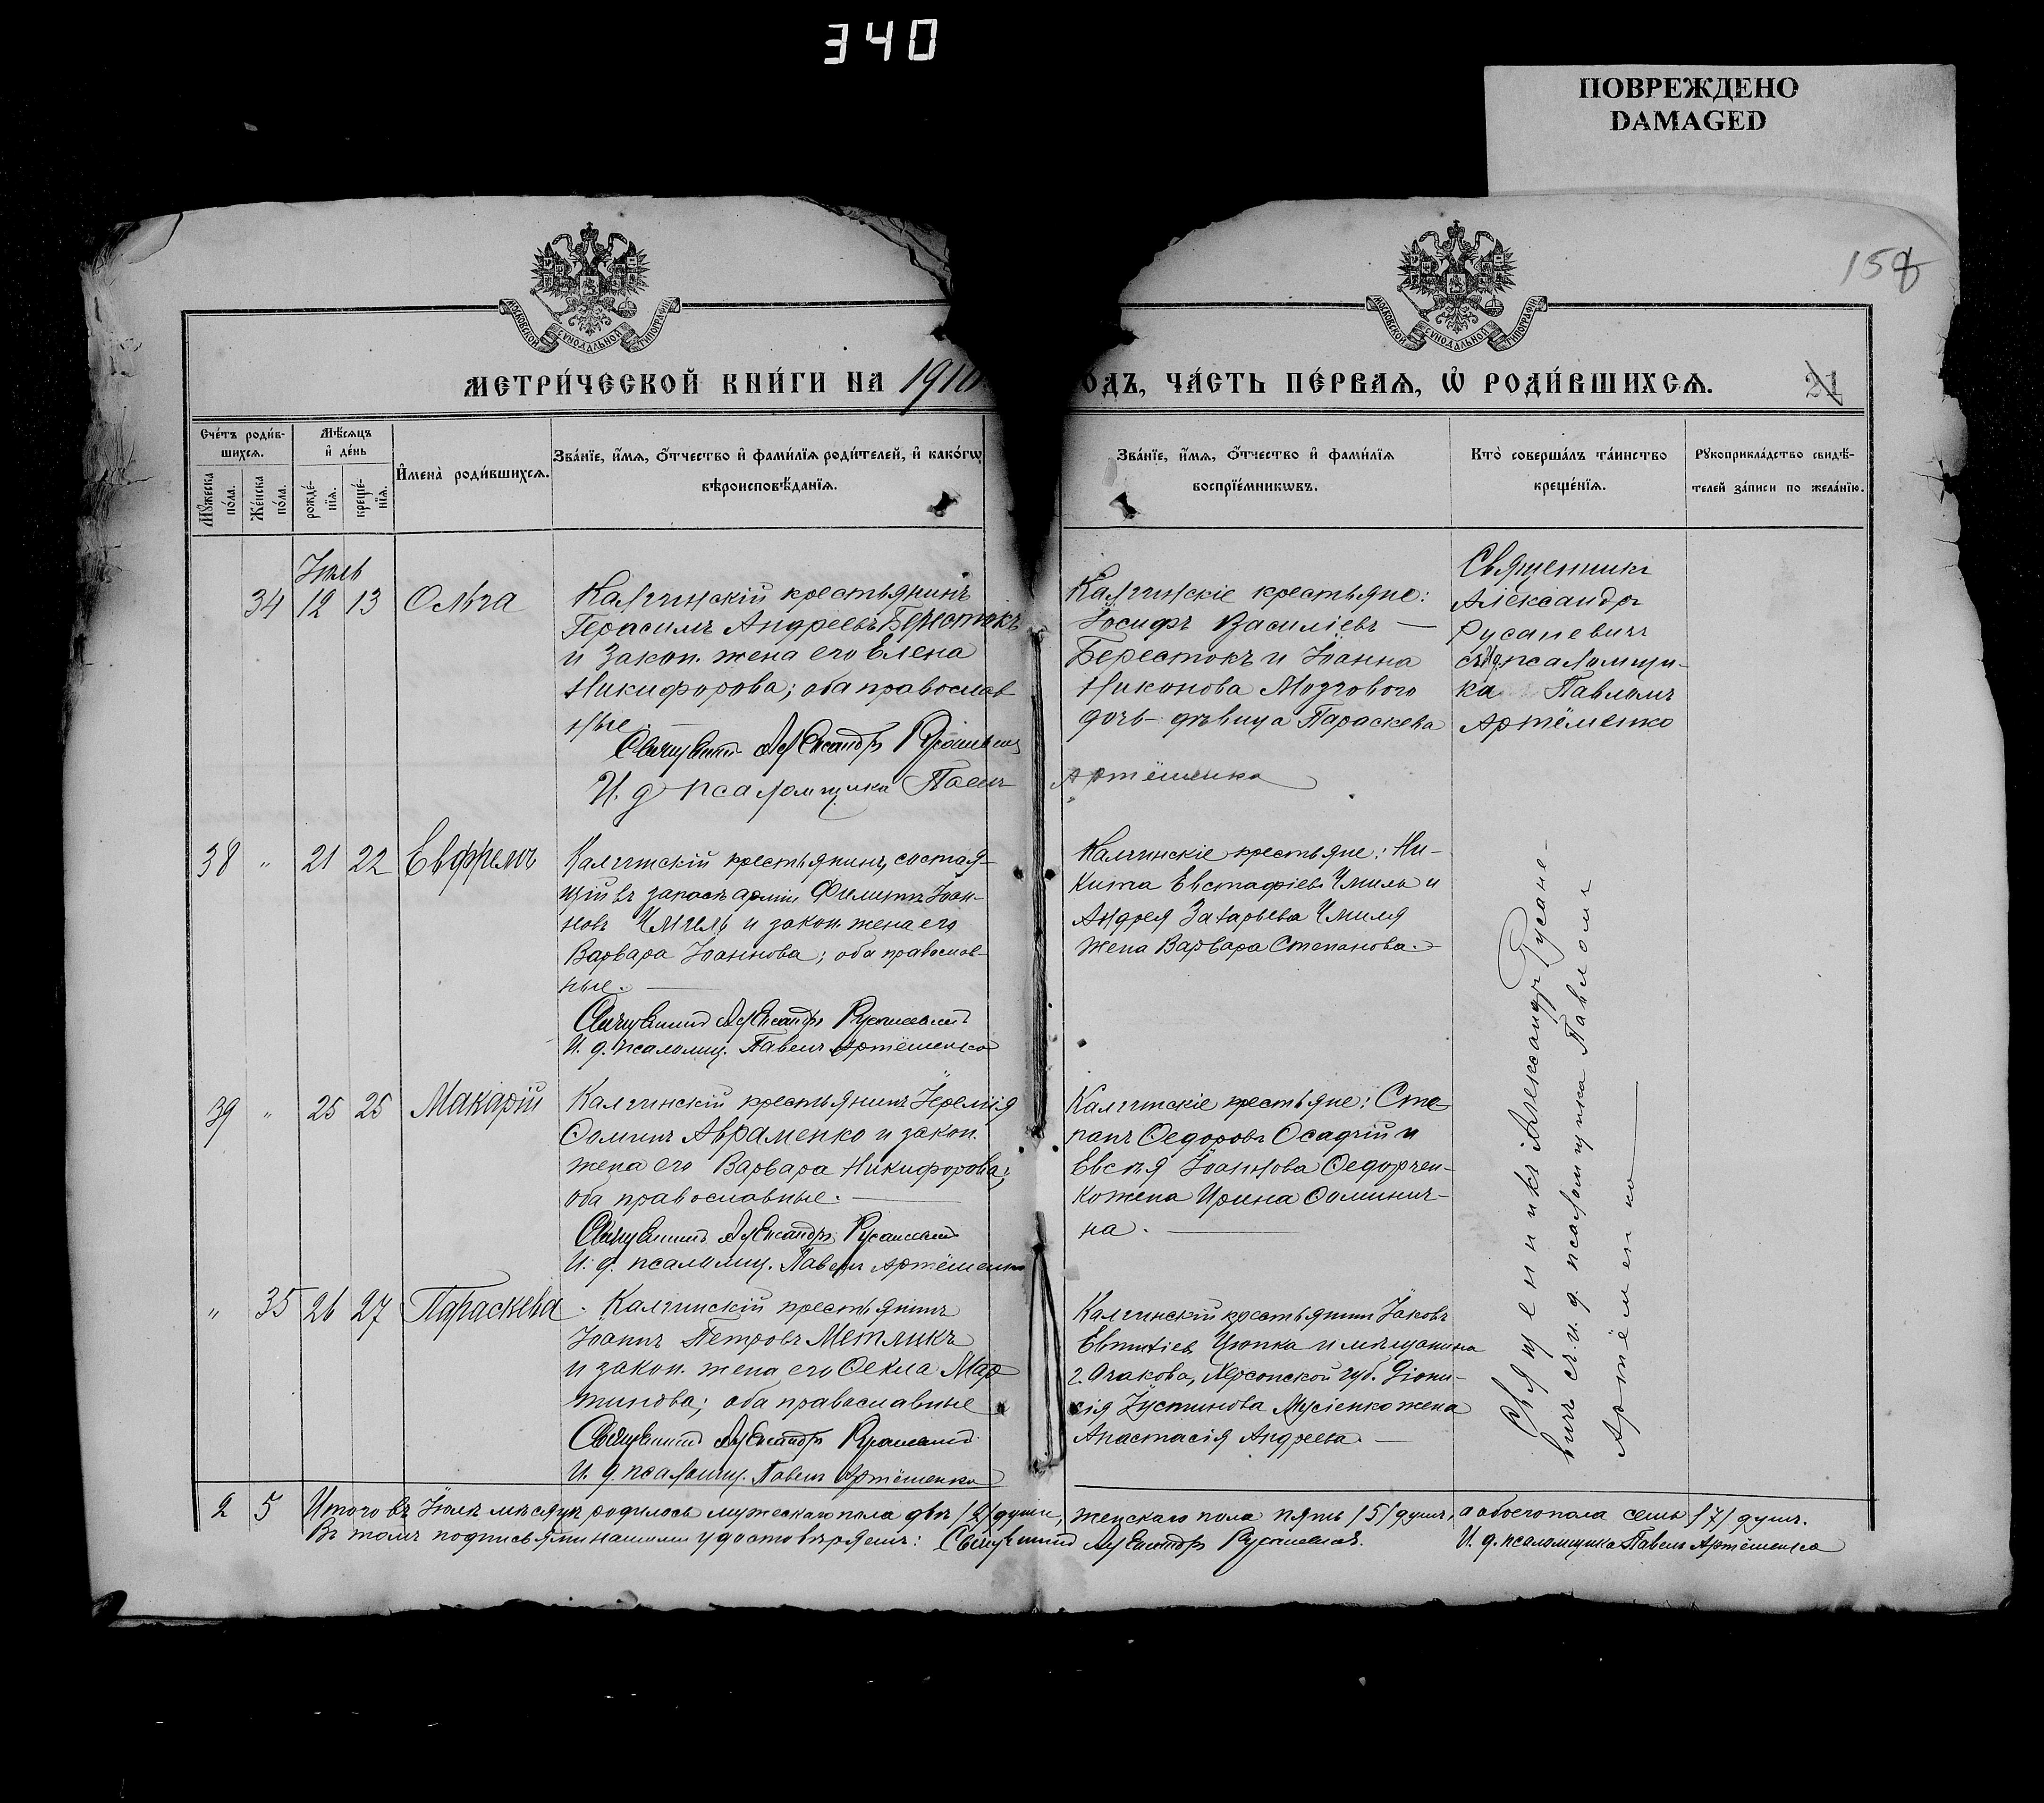 340
ПОВРЕЖДЕНО
DAMAGED
158
МОСКОВСКОЙ СѴНОДАЛЬНОЙ ТИПОГРАФІИ
МОСКОВСКОЙ СѴНОДАЛЬНОЙ ТИПОГРАФІИ
МЕТРИ́ЧЕСКОЙ КНИ́ГИ НА 1910
ОДЪ, ЧА́СТЬ ПЕ́РВАѦ, Ѡ҆ РОДИ́ВШИХСѦ.
21
Сче́тъ роди́в-
шихсѧ.
Мꙋжеска по́ла.
Же́нска по́ла.
Мѣ́сѧцъ
и҆ де́нь
рожде́-
нїѧ.
креще́-
нїѧ.
И҆мена̀ роди́вшихсѧ.
Зва́нїе, и҆́мѧ, ѻ҆́тчество и҆ фами́лїѧ роди́телей, и҆ како́гѡ
вѣроисповѣ́данїѧ.
Зва́нїе, и҆́мѧ, ѻ҆́тчество и҆ фами́лїѧ
воспрїе́мникѡвъ.
Кто̀ соверша́лъ та́инство
креще́нїѧ.
Рꙋкоприкла́дство свидѣ́-
телей за́писи по жела́нїю.
Іюль
34 12 13 Ольга
Калгинскій крестьянинъ
Герасимъ Андреевъ Берестокъ
и закон. жена его Елена
Никифорова; оба православ
ные.
Священникъ Александръ Русаневич
И. д псаломщика Павелъ Артёменко
Калгинскіе крестьяне:
Іосифъ Василіевъ —
Берестокъ и Іоанна
Никонова Мозгового
дочь – дѣвица Параскева
Священникъ
Александръ
Русаневичъ
съ и д. псаломщи-
ка Павломъ
Артёменко
38 " 21 22 Евфремъ
Калгинскій крестьянинъ, состоя-
щій въ запасѣ арміи Филиппъ Іоан-
новъ Чмиль и закон. жена его
Варвара Іоаннова; оба православ-
ные. —
Священникъ Александръ Русаневичъ
И. д. псаломщ. Павелъ Артёменко
Калгинскіе крестьяне: Ни-
кита Евстафіевъ Чмиль и
Андрея Захарьева Чмиля
жена Варвара Степанова. –
39 " 25 25 Макарій
Калгинскій крестьянинъ Іеремія
Ѳоминъ Авраменко и закон.
жена его Варвара Никифорова;
оба православные. —
Священникъ Александръ Русаневичъ
И. д. псаломщ. Павелъ Артёменко
Калгинскіе крестьяне: Сте
панъ Ѳедоровъ Осадчій и
Евсѣя Іоаннова Ѳедорчен-
ко жена Ирина Ѳоминич-
на. —
" 35 26 27 Параскева
Калгинскій крестьянинъ
Іоаннъ Петровъ Метликъ
и закон. жена его Ѳекла Мар
тинова; оба православные
Священникъ Александръ Русаневичъ
И. д. псаломщ. Павелъ Артёменко
Калгинскій крестьянинъ Іаковъ
Евтихіевъ Цюпка и мѣщанина
г. Очакова, Херсонской губ. Діони-
сія Іустинова Мусіенко жена
Анастасія Андреева. —
Священникъ Александръ Русане-
вичъ съ и. д. псаломщика Павломъ
Артёменко —
2 5 Итого въ Іюлѣ мѣсяцѣ родилось мужескаго пола двѣ /2/ души, женскаго пола пять /5/ душъ, а обоего пола семь /7/ душъ.
Въ томъ подписями нашими удостовѣряемъ: Священникъ Александръ Русаневичъ. И. д. псаломщика Павелъ Артёменко